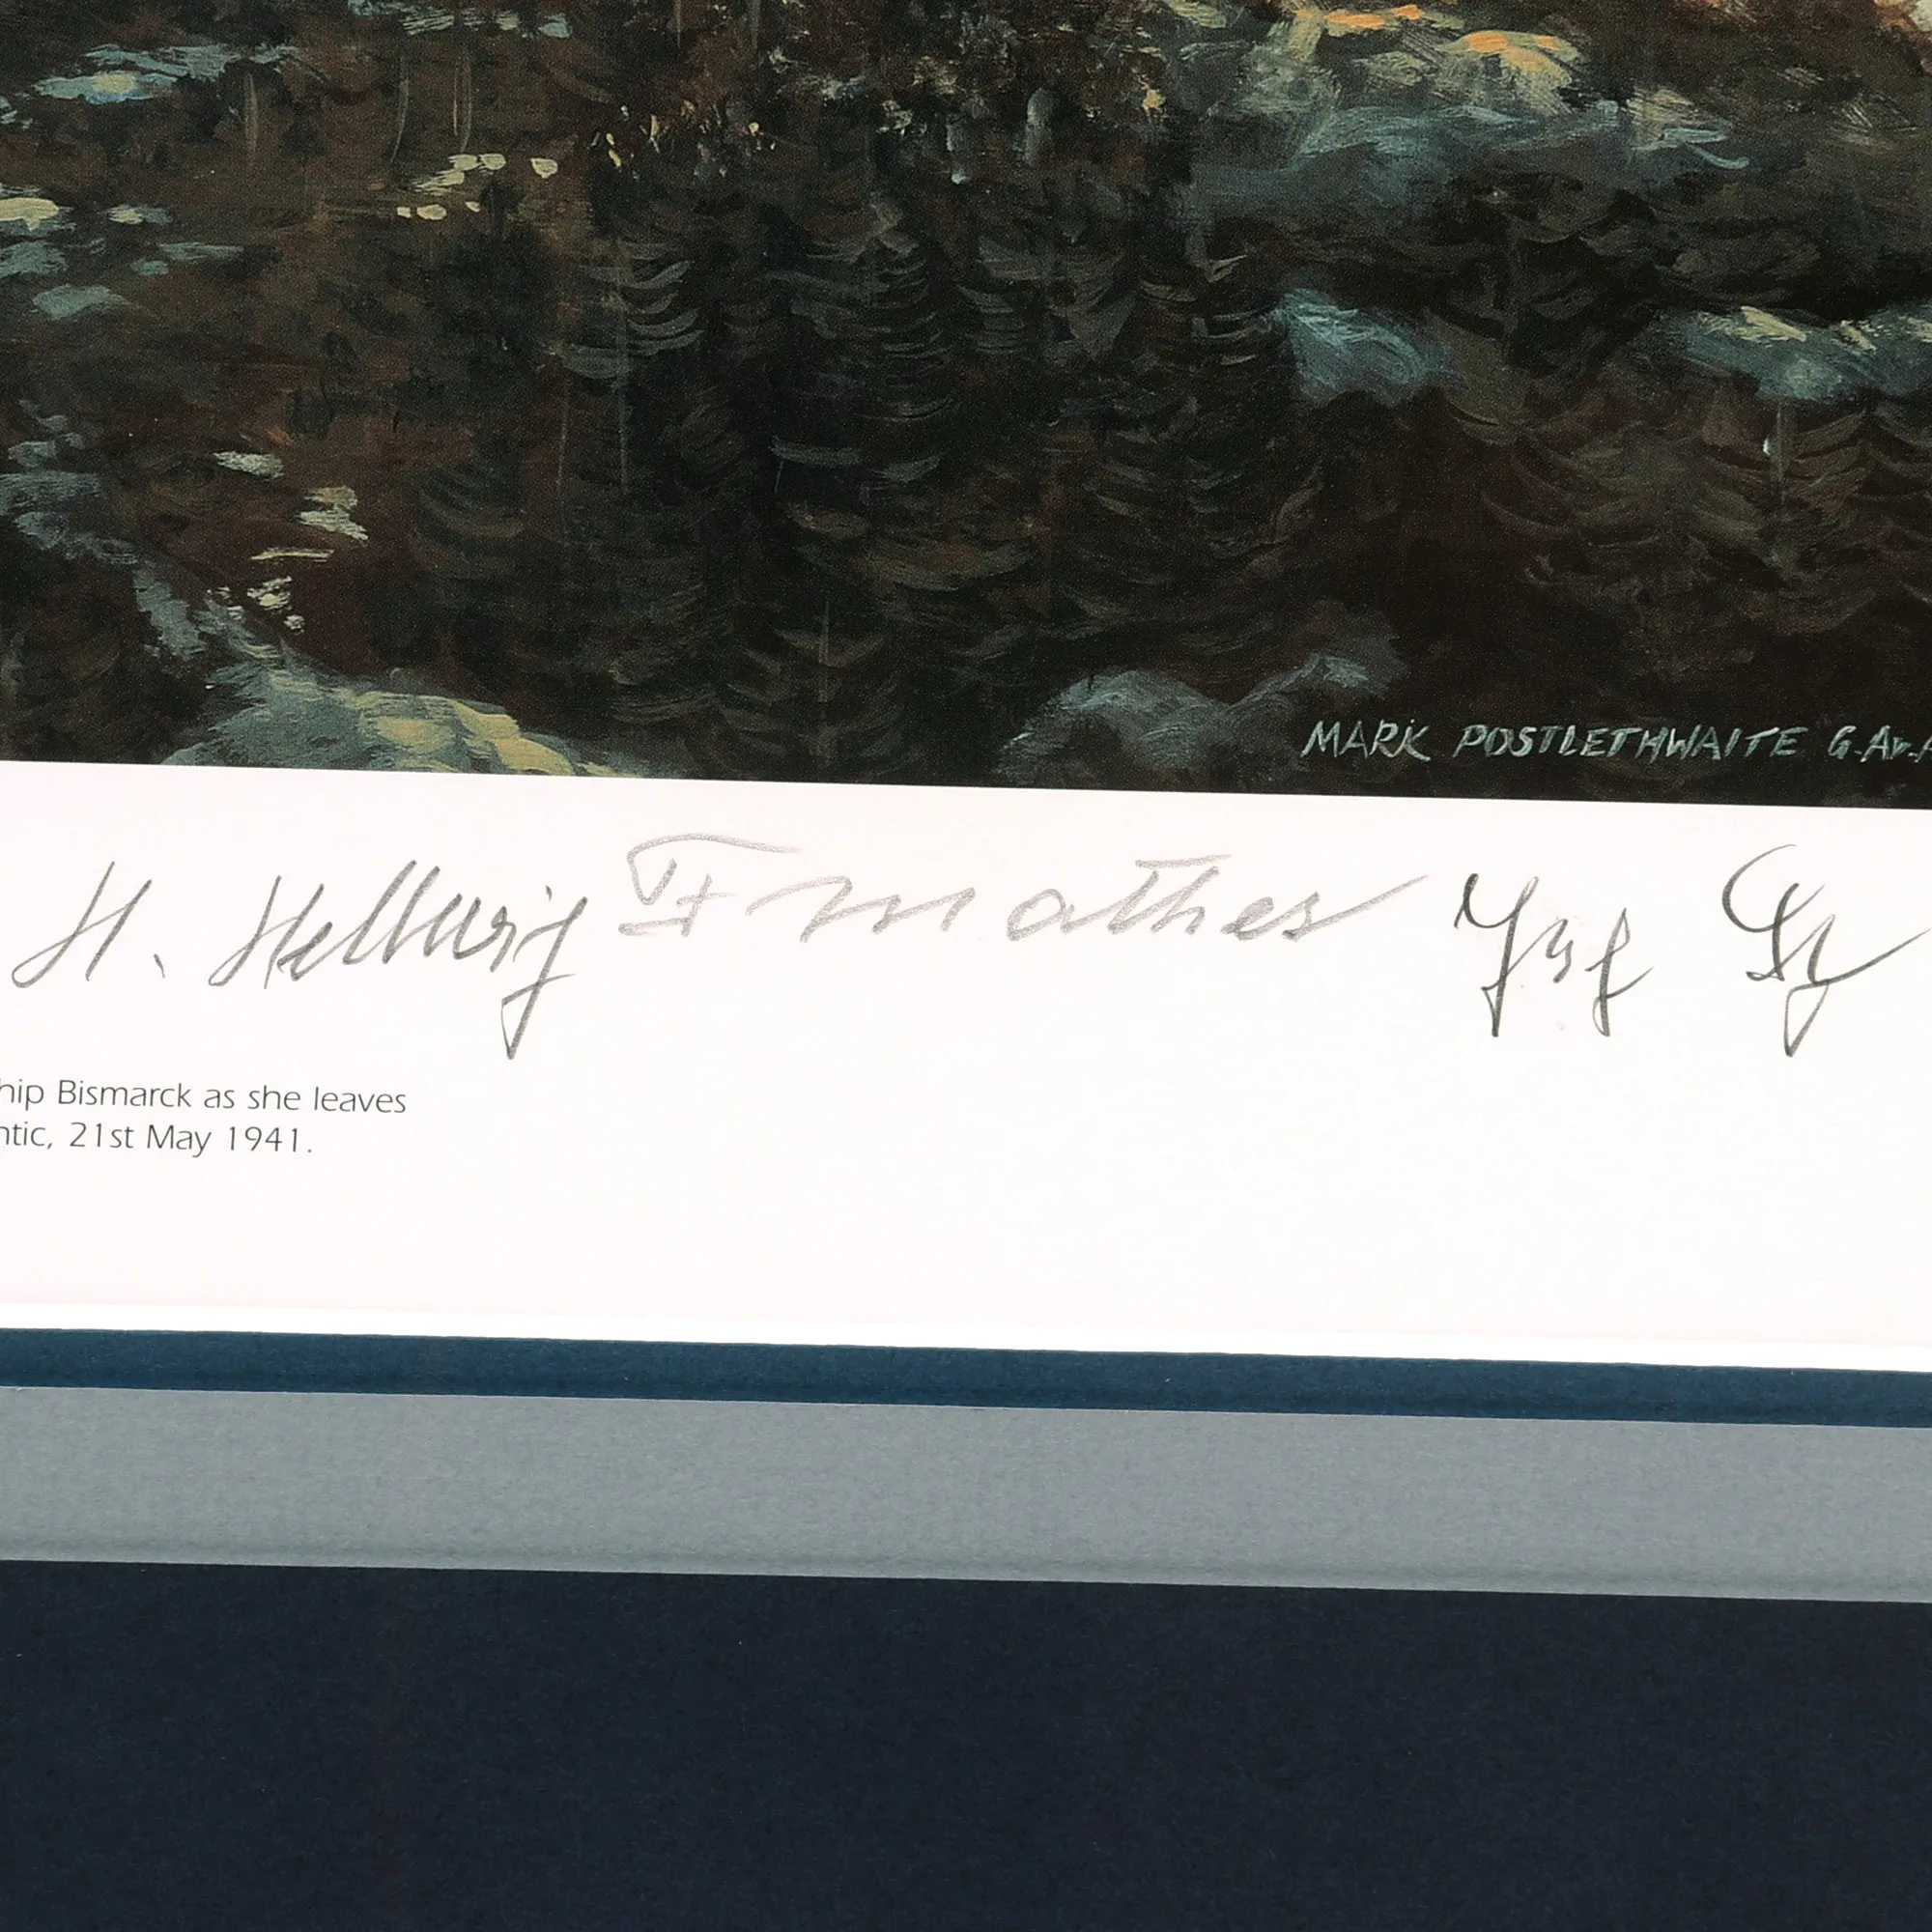 MARK POSTLETHWAITE G.Av.A
H. Hellwig F Mathes
hip Bismarck as she leaves
ntic, 21st May 1941.